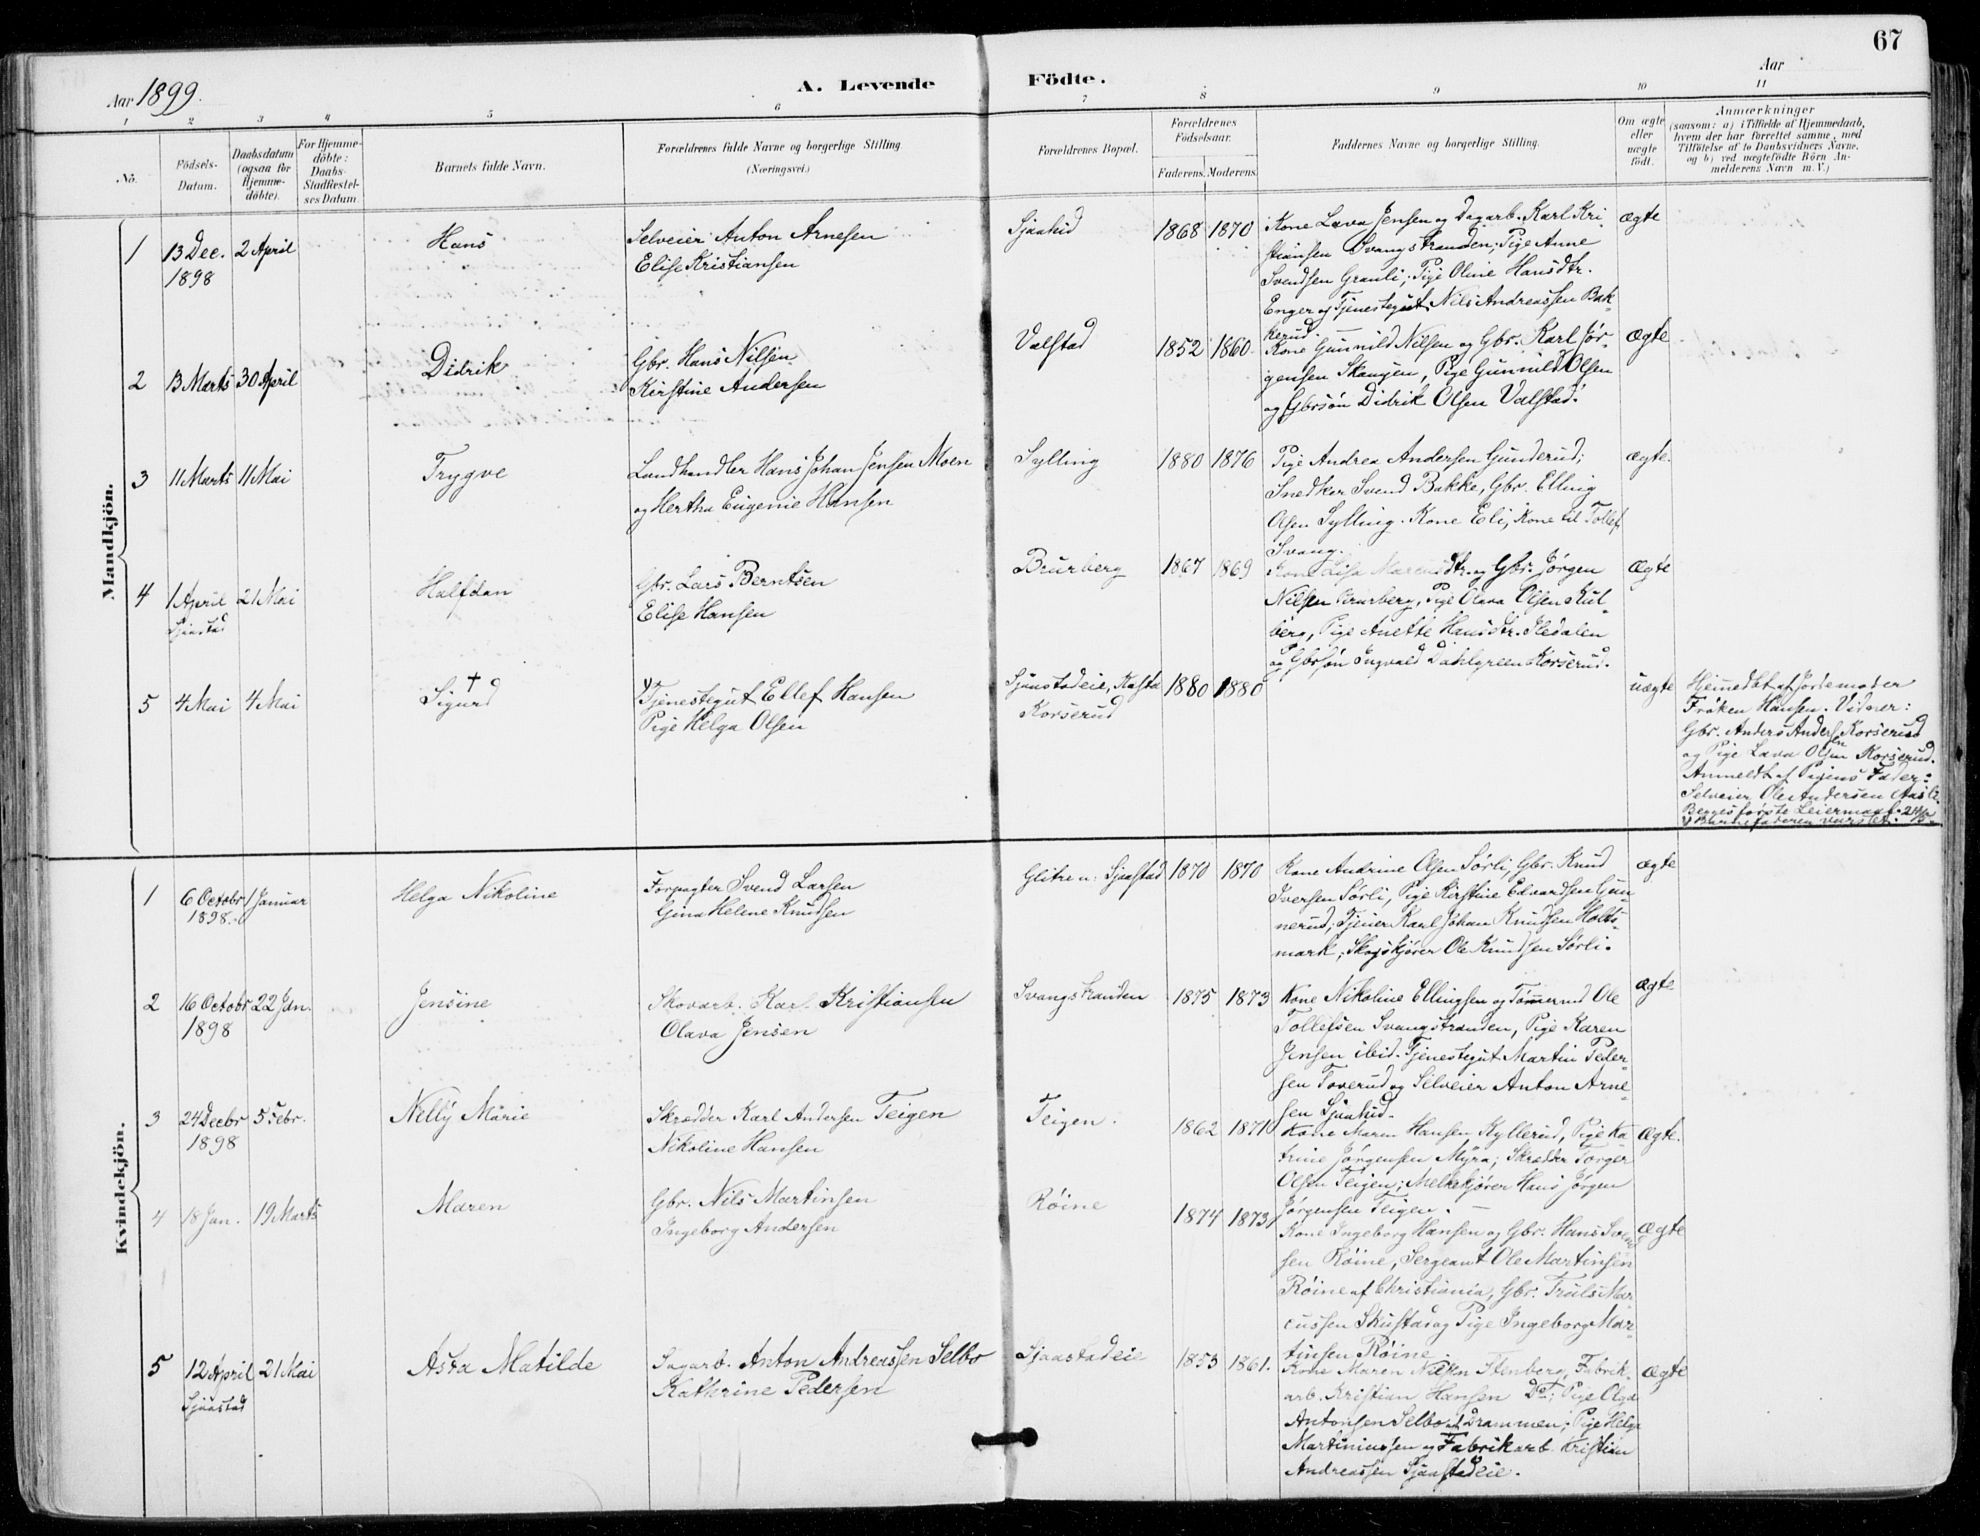 67
Aar 1899.
A. Levende Födte.
Aar
1 2 3 4 5 6 7 8 9 10 11
No.
Födsels-
Datum.
Daabsdatum
(ogsaa for
Hjemme-
döbte).
For Hjemme-
döbte:
Daabs-
Stadfæstel-
ses Datum.
Barnets fulde Navn.
Forældrenes fulde Navne og borgerlige Stilling
(Næringsvei.)
Forældrenes Bopæl.
Forældrenes
Födselsaar.
Faderens. Moderens.
Faddernes Navne og borgerlige Stilling.
Om ægte
eller
uægte
födt.
Anmærkninger
(saasom: a) i Tilfælde af Hjemmedaab,
hvem der har forrettet samme, med
Tilföielse af to Daabsvidners Navne,
og b) ved uægtefödte Börn An-
melderens Navn m. V.)
Mandkjön.
1
13 Dec.
1898
2 April
Hans
Selveier Anton Arnesen
Elise Kristiansen
Sjaahid
1868
1870
Kone Lava Jensen og Dagarb. Karl Kri-
stiansen Svangstranden; Pige Anne
Svendsen Granli; Pige Oline Hansdtr.
Enger og Tjenestegut Nils Andreassen Bak-
kerud
ægte
2
13 Marts
30 April
Didrik
Gbr. Hans Nilsen
Kirstine Andersen
Valstad
1852
1860
Kone Gunnild Nilsen og Gbr. Karl Jör-
gensen Skaugen, Pige Gunnild Olsen
og Gbrsøn Didrik Olsen Valstad.
ægte
3
11 Marts
11 Mai
Trygve
Landhandler Hans Johan Jensen Moen
og Hertha Eugenie Hansen
Sylling
1880
1876
Pige Andrea Andersen Gunderud;
Snedker Svend Bakke, Gbr. Elling
Olsen Sylling. Kone Eli, Kone til Tollef
Svang.
ægte.
4
1 April
Sjåstad
21 Mai
Halfdan
Gbr. Lars Berntsen
Elise Hansen
Brurberg
1867
1869
Kone Lisa dtr. og Gbr. Jørgen
Nilsen Brurberg, Pige Olava Olsen Kul-
berg, Pige Anette Hansdtr.
og Gbrsøn Ingvald Dahlgreen Korserud.
Ægte
5
4 Mai
4 Mai
Sigurd †
Tjenestegut Ellef Hansen
Pige Helga Olsen
Sjaastadeie,
Korserud
1880
1880
uægte
Hjemedbt af Jordemoder
Frøken Hansen. Vidner:
Gbr. Anders Andersen Korserud
og Pige Lava Olsen Korserud.
Anmeldt af Pigens Fader:
Selveier Ole Andersen
Begges første Leiermaal.
Barnefaderen varslet.
Kvindekjön.
1
6 Octobr
1898.
1 Januar
Helga Nikoline
Forpagter Svend Larsen
Gina Helene Knudsen
Glitre u: Sjaastad
1870
1870
Kone Andrine Olsen Sørli, Gbr. Knud
Iversen Sørli, Pige Kirstine Edvardsen Gun-
nerud; Tjener Karl Johan Knudsen Holts-
mark; Skogskjører Ole Knudsen Sørli.
ægte
2
16 Octobr
1898
22 Jan.
Jensine
Skovarb. Karl Kristiansen
Olava Jensen
Svangstranden
1875
1873
Kone Nikoline Ellingsen og Tømmermd Ole
Tollefsen Svangstranden, Pige Karen
Jensen ibid. Tjenestegut Martin Peder-
sen Toverud og Selveier Anton Arne-
sen Sjaahid.
Ægte
3
24 Decbr
1898
5 Febr.
Nelly Marie
Skrædder Karl Andersen Teigen
Nikoline Hansen
Teigen.
1862
1871
Kone Maren Hansen Kyllerud, Pige Ka
trine Jørgensen Myra; Skrædder Torger
Olsen Teigen; Melkekjører Hans Jørgen
Jörgensen Teigen.
Ægte.
4
18 Jan.
19 Marts
Maren
Gbr. Nils Martinsen
Ingeborg Andersen
Röine
1874
1873
Kone Ingeborg Hansen og Gbr. Hans Svend
sen Röine, Sergeant Ole Martinsen
Röine af Christiania, Gbr. Truls Mar-
cussen Skustad og Pige Ingeborg Mar-
tinsen Röine
Ægte
5
12 April
Sjåastad
21 Mai
Asta Matilde
Sagarb. Anton Andreassen Selbo
Kathrine Pedersen
Sjaastadeie
1853
1861.
Kone Maren Nilsen Stenberg, Fabrik-
arb. Kristian Hansen Do; Pige Olga
Antonsen Selbo af Drammen; Pige Helga
Martiniussen og Fabrikarb. Kristian
Andreassen Sjaastadeie.
Ægte